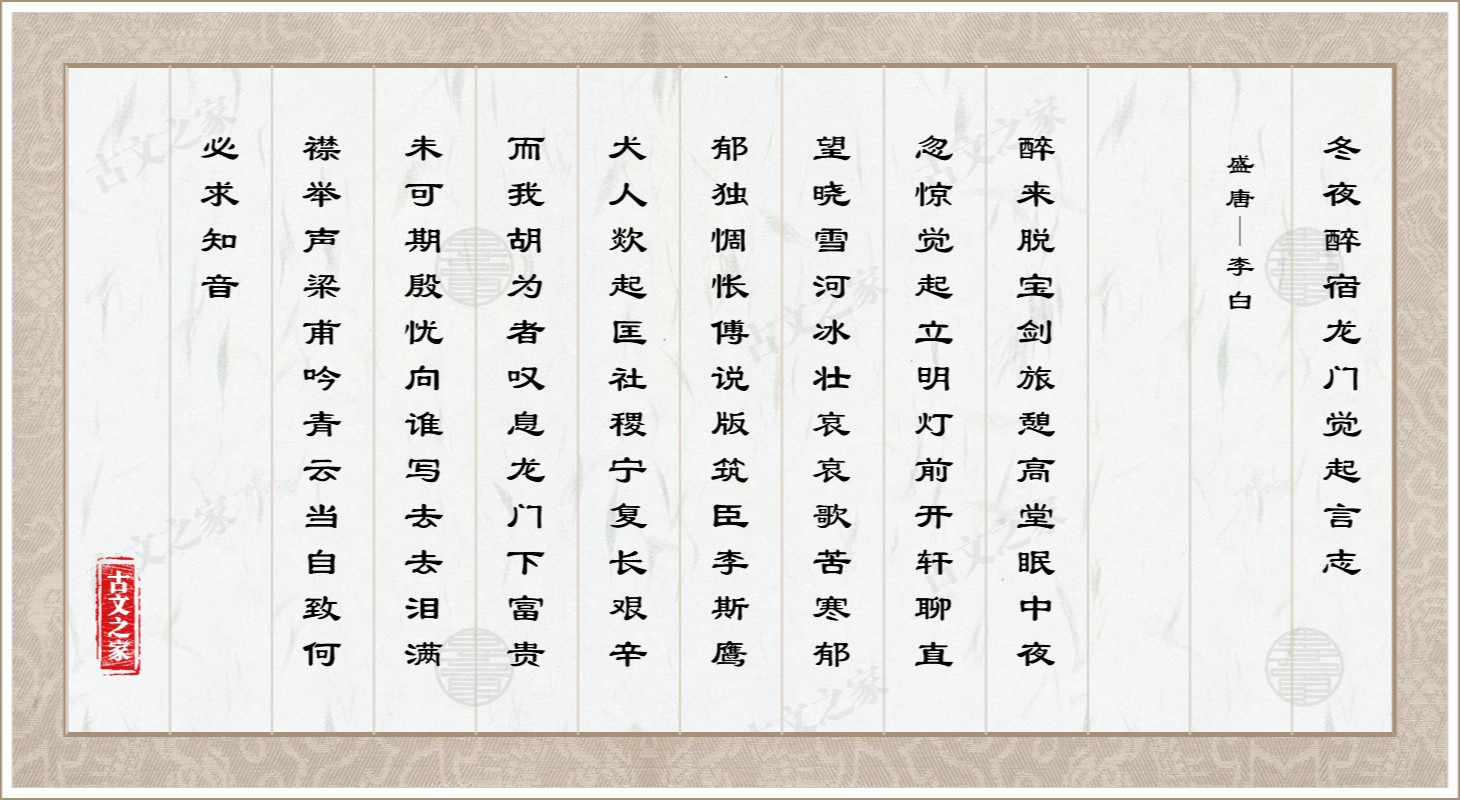 冬夜醉宿龙门觉起言志
盛唐—李白
醉来脱宝剑旅憩高堂眠中夜
忽惊觉起立明灯前开轩聊直
望晓雪河冰壮哀哀歌苦寒郁
郁独惆怅傅说版筑臣李斯鹰
犬人欻起匡社稷宁复长艰辛
而我胡为者叹息龙门下富贵
未可期殷忧向谁写去去泪满
襟举声梁甫吟青云当自致何
必求知音
古文之家
古文之家
古文之家
古文之家
古文之家
古文之家
古文之家